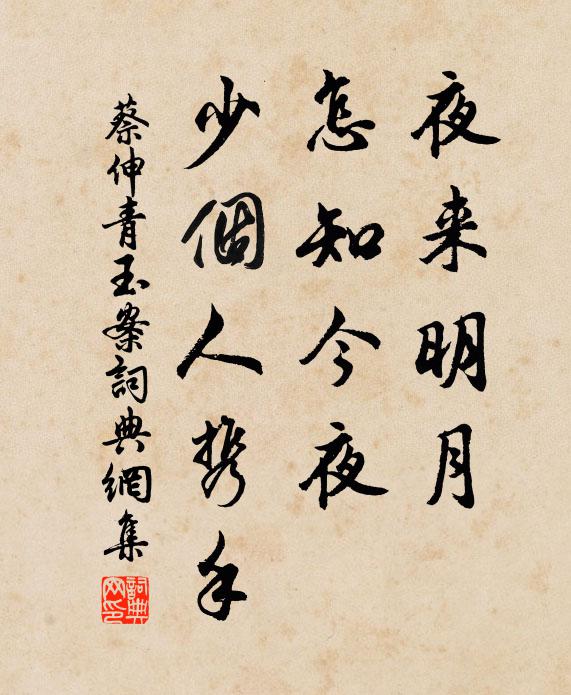 夜来明月
怎知今夜
少個人携手
蔡伸青玉案詞典網集
詞典网印